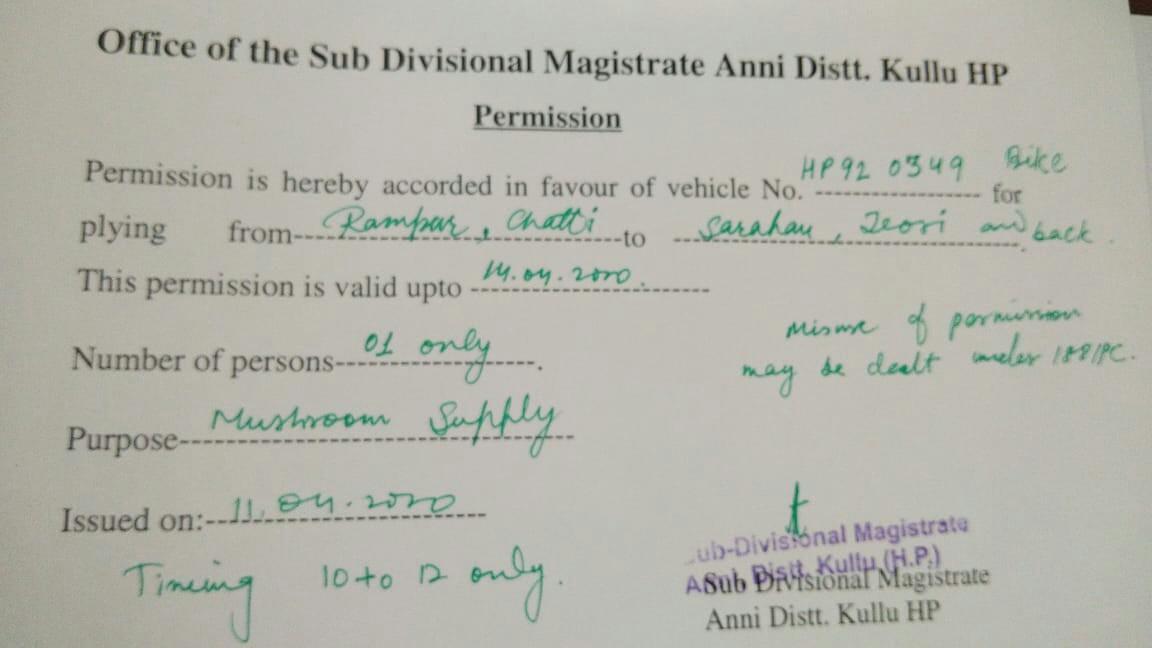 Office of the Sub Divisional Magistrate Anni Distt. Kullu HP
Permission
Permission is hereby accorded in favour of vehicle No. HP92 0349 Bike for
plying from Rampur, Chatti to Sarahan, Jeori and back.
This permission is valid upto 14.04.2020.
Number of persons 01 only.
Misuse of permission
may be dealt under 188 IPC.
Purpose Mushroom Supply
Issued on: 11.04.2020
Timing 10 to 12 only.
Sub-Divisional Magistrate
Distt. Kullu (H.P.)
Sub Divisional Magistrate
Anni Distt. Kullu HP